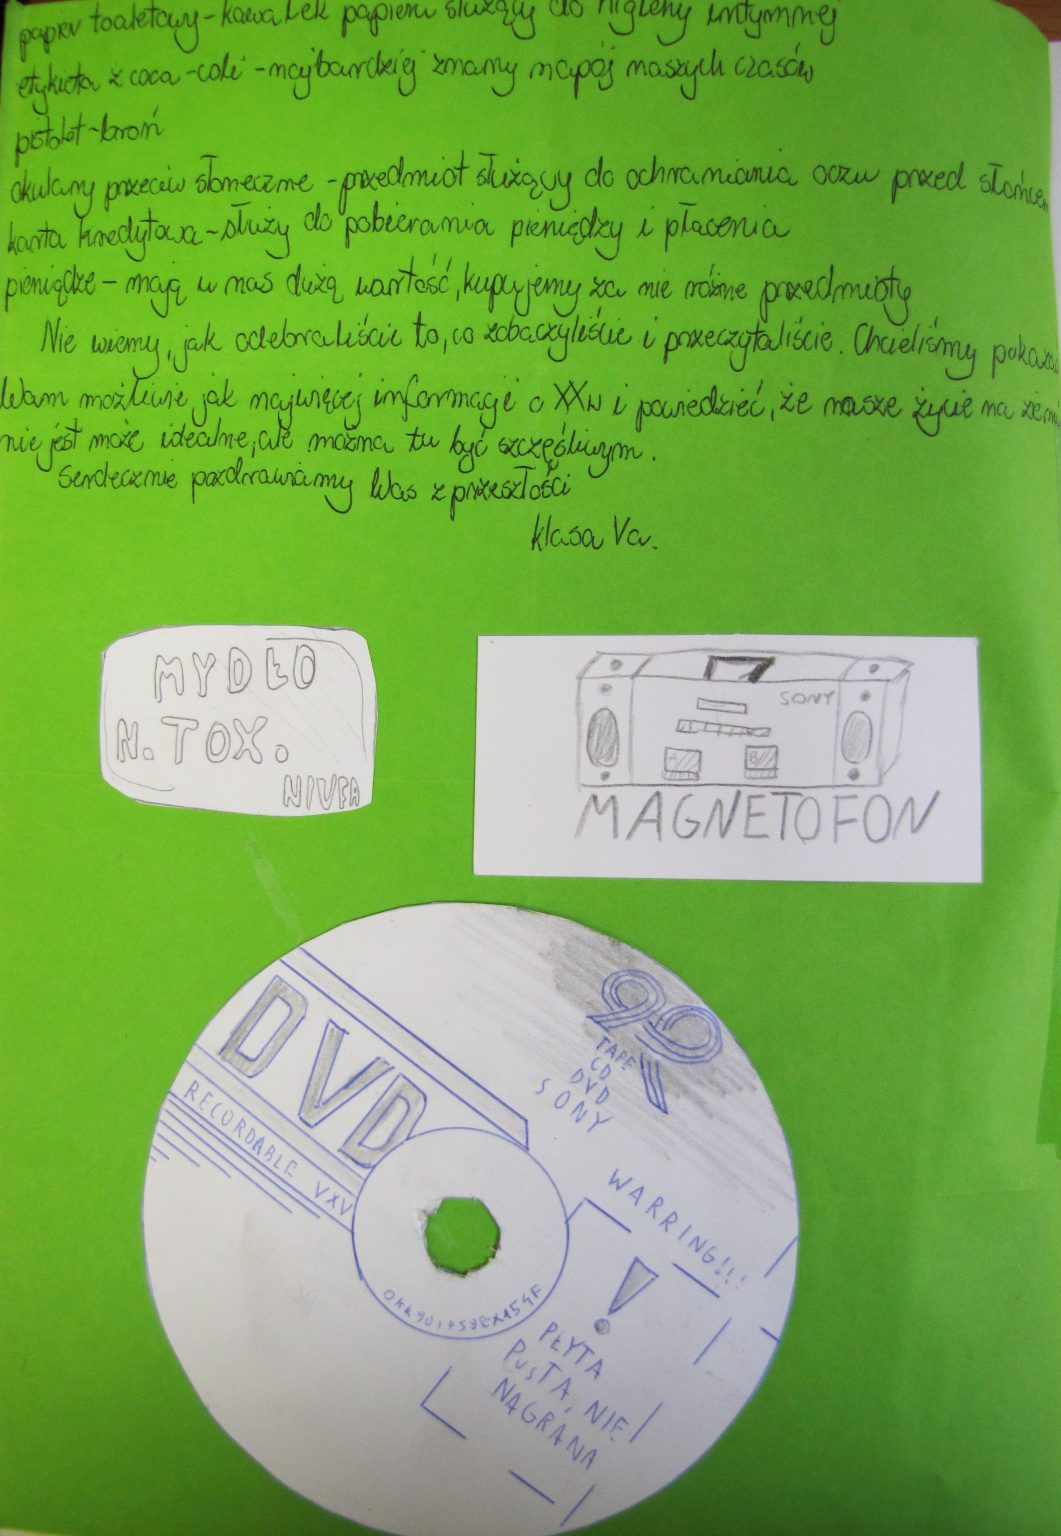 papier toaletowy - kawałek papieru służący do higieny intymnej
etykieta z coca-coli - najbardziej znany napój naszych czasów
pistolet - broń
okulary przeciw słoneczne - przedmiot służący do ochraniania oczu przed słońcem
karta kredytowa - służy do pobierania pieniędzy i płacenia
pieniądze - mają u nas dużą wartość, kupujemy za nie różne przedmioty
Nie wiemy, jak odebraliście to, co zobaczyliście i przeczytaliście. Chcieliśmy pokazać
Wam możliwie jak najwięcej informacji o XXw i powiedzieć, że nasze życie na ziemi
nie jest może idealne, ale można tu być szczęśliwym.
Serdecznie pozdrawiamy Was z przeszłości
klasa Va.
MYDŁO
N. TOX.
NIVEA
SONY
A
B
MAGNETOFON
DVD
RECORDABLE VXV
TAPE
CD
DVD
SONY
WARRING!!!
!
PŁYTA
PUSTA, NIE
NAGRANA